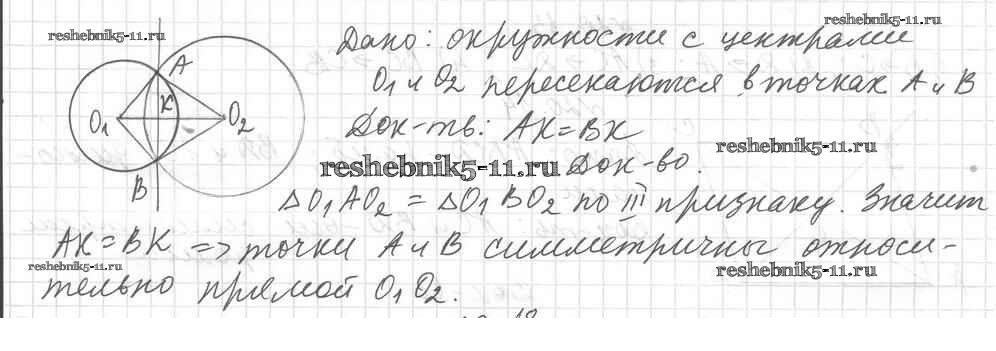 reshebnik5-11.ru
reshebnik5-11.ru
Дано: окружности с центрами
A
O1 и O2 пересекаются в точках A и B
K
O1
O2
Док-ть: AK=BK
reshebnik5-11.ru
reshebnik5-11.ru
Док-во.
B
△O1AO2 = △O1BO2 по III признаку. Значит
AK=BK => точки A и B симметричны относи-
reshebnik5-11.ru
reshebnik5-11.ru
тельно прямой O1O2.